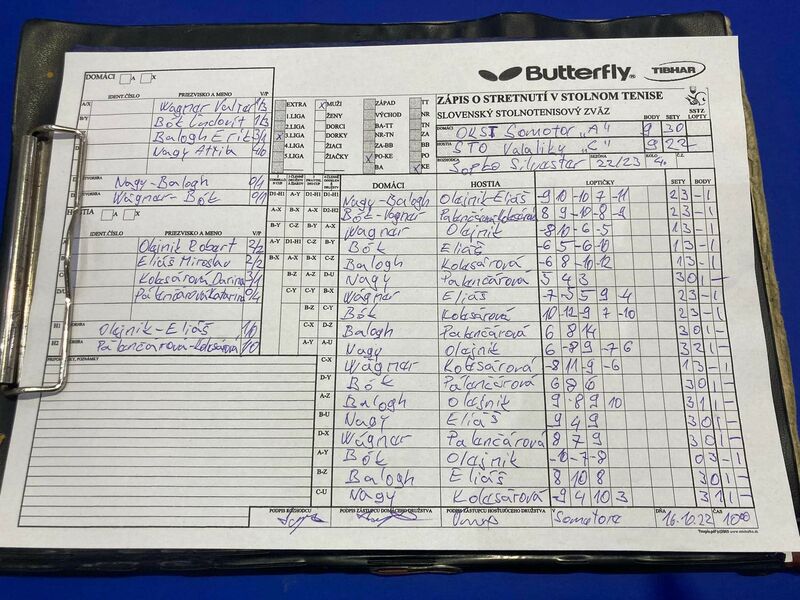 Butterfly
TIBHAR
DOMÁCI A X
IDENT.ČÍSLO PRIEZVISKO A MENO V/P
A/X Wagnar Valter 1/3
B/Y Bók Ľudovít 1/3
Balogh Erik 3/1
Nagy Attila 4/0
Nagy-Balogh 0/1
Wagnar-Bók 0/1
HOSTIA A X
IDENT.ČÍSLO PRIEZVISKO A MENO V/P
Olajnik Robert 2/2
Eliáš Miroslav 2/2
Kolesárová Darina 3/1
Palenčárová Katarína 0/4
H1 Olajnik-Eliáš 1/0
H2 Palenčárová-Kolesárová 1/0
PRIPOMIENKY, POZNÁMKY
EXTRA X MUŽI ZÁPAD TT
1.LIGA ŽENY VÝCHOD NR
2.LIGA DORCI BA-TT TN
X 3.LIGA DORKY NR-TN ZA
4.LIGA ŽIACI ZA-BB BB
5.LIGA ŽIAČKY PO-KE PO
BA X KE
ZÁPIS O STRETNUTÍ V STOLNOM TENISE
SLOVENSKÝ STOLNOTENISOVÝ ZVÄZ
SSTZ
BODY SETY LOPTY
DOMÁCI OKST Somotor "A" 9 30
HOSTIA STO Valaliky "C" 9 22
ROZHODCA Sopko Silvester SEZÓNA 22/23 KOLO 4.
DOMÁCI HOSTIA LOPTIČKY SETY BODY
D1-H1 A-Y D1-H1 D1-H1 Nagy-Balogh Olajnik-Eliáš -9 10 -10 7 -11 2 3 - 1
A-X B-X A-X D2-H2 Bók-Wagnar Palenčárová-Kolesárová 8 9 -10 -8 -9 2 3 - 1
B-Y C-Z B-Y A-X Wagnar Olajnik -8 10 -6 -5 1 3 - 1
A-Y D1-H1 C-Z B-Y Bók Eliáš -6 5 -6 -10 1 3 - 1
B-X A-X C-Z Balogh Kolesárová -6 8 -10 -12 1 3 - 1
B-Z A-Z D-U Nagy Palenčárová 5 4 3 3 0 1 -
C-Y C-Y A-Y Wágnar Eliáš -7 -5 5 9 -4 2 3 - 1
B-Z Bók Kolesárová 10 -12 9 -7 -10 2 3 - 1
C-X D-Z Balogh Palenčárová 6 8 14 3 0 1 -
A-Y A-U Nagy Olajnik 6 -8 9 -7 6 3 2 1 -
C-X Wágnar Kolesárová -8 11 -9 -6 1 3 - 1
D-Y Bók Palenčárová 6 8 6 3 0 1 -
A-Z Balogh Olajnik 9 -8 9 10 3 1 1 -
B-U Nagy Eliáš 9 4 9 3 0 1 -
D-X Wágnar Palenčárová 8 7 9 3 0 1 -
A-Y Bók Olajnik -10 -7 -8 0 3 - 1
B-Z Balogh Eliáš 8 10 8 3 0 1 -
C-U Nagy Kolesárová -9 4 10 3 3 1 1 -
PODPIS ROZHODCU PODPIS ZÁSTUPCU DOMÁCEHO DRUŽSTVA PODPIS ZÁSTUPCU HOSŤUJÚCEHO DRUŽSTVA V Somotore DŇA 16.10.22 ČAS 10:00